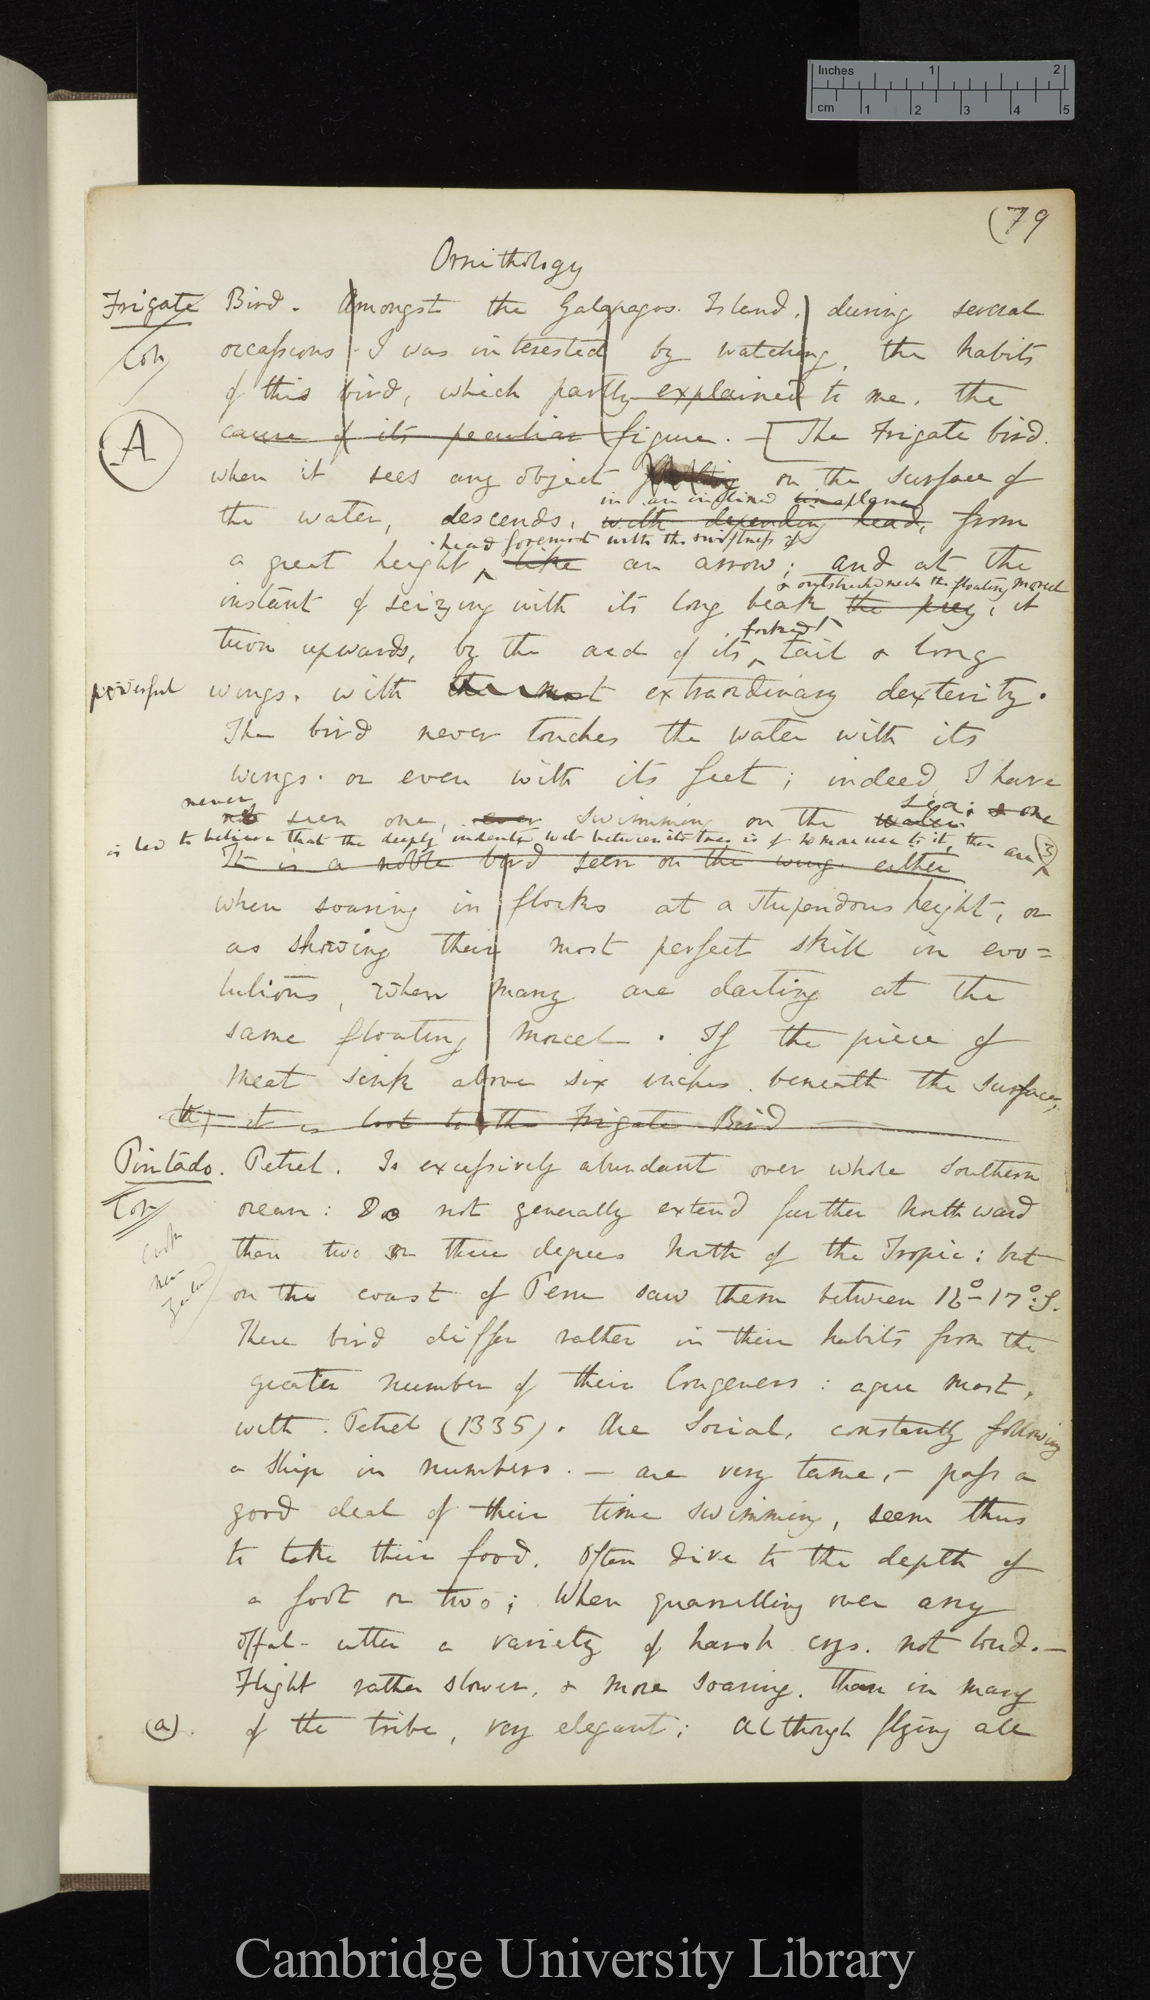 Inches 1 2
cm 1 2 3 4 5
(79
Ornithology
Frigate Bird. Amongst the Galapagos Island, during several
Cop occasions I was interested by watching, the habits
of this bird, which partly explained to me, the
A cause of its peculiar figure. — [The Frigate bird.
when it sees any object on the surface of
in an inclined plane
the water, descends, with depending head, from
head foremost with the swiftness of
a great height, like an arrow; and at the
& outstretched neck the floating morsel
instant of seizing with its long beak the prey, it
forked
turn upwards, by the aid of its tail & long
powerful wings. with the most extraordinary dexterity.
The bird never touches the water with its
wings. or even with its feet; indeed I have
never sea: & one
not seen one, ever swimming on the water
is led to believe that the deeply indented web between its toes is of no more use to it, than are (3)
It is a noble bird seen on the wing either
when soaring in flocks at a stupendous height, or
as showing their most perfect skill in evo=
lutions, when many are darting at the
same floating morcel. If the piece of
meat sink above six inches beneath the surface,
it is lost to the Frigate Bird
Pintado. Petrel. Is excessively abundant over whole Southern
Cop ocean: Do not generally extend further Northward
than two or three degrees North of the Tropic: but
on the coast of Peru saw them between 16°-17°: S.
These bird differ rather in their habits from the
greater number of their Congeners: agree most,
with Petrel (1335). Are Social, constantly following
a Ship in numbers. — are very tame, — pass a
good deal of their time swimming, seem thus
to take their food. Often dive to the depth of
a foot or two; When quarrelling over any
offal - utter a variety of harsh crys. not loud. —
Flight rather slower, & more soaring. than in many
(a). of the tribe, very elegant; Although flying all
Cambridge University Library